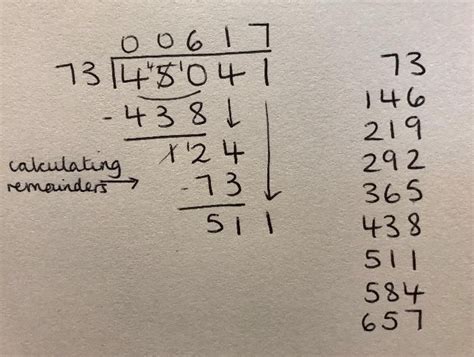 00617
73 4⁴5¹041
-438↓
1¹24
calculating
remainders→
-73
511
73
146
219
292
365
438
511
584
657